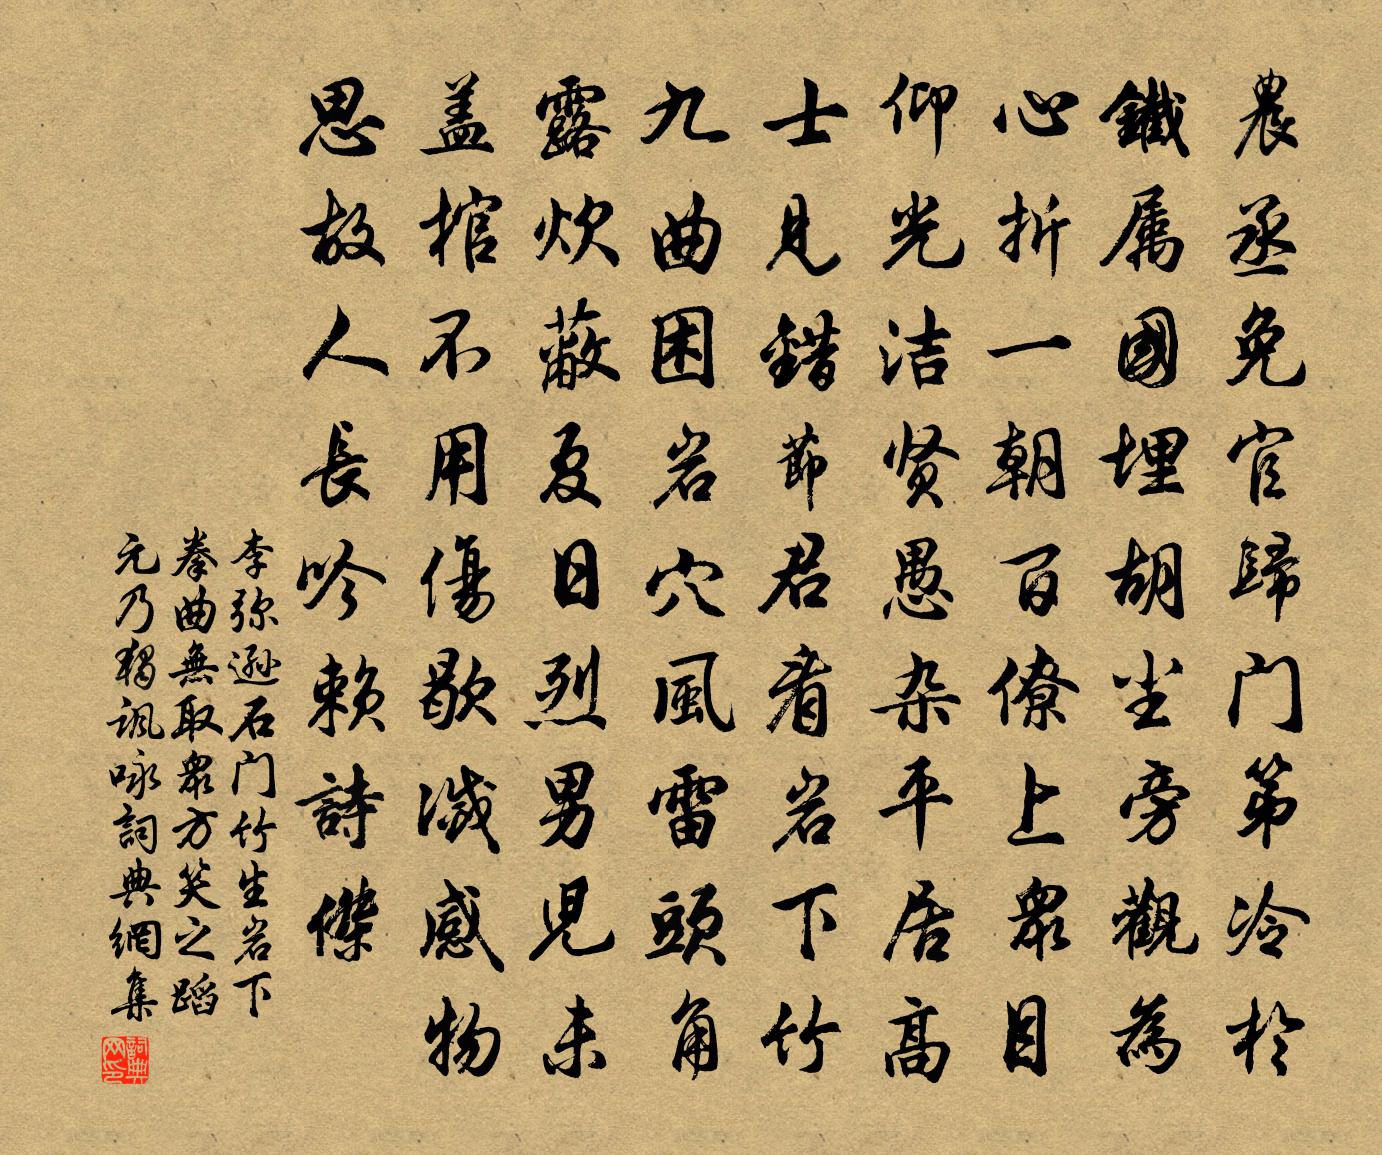 農丞免官歸门第冷於
鐵属國埋胡尘旁觀為
心折一朝百僚上眾目
仰光洁贤愚杂平居高
士見錯節君看岩下竹
九曲困岩穴風雷頭角
露炊蔽夏日烈男児未
盖棺不用傷歇滅感物
思故人長吟赖詩傑
李弥逊石门竹生岩下
拳曲無取眾方笑之蹈
元乃獨讽咏詞典網集
詞典网印